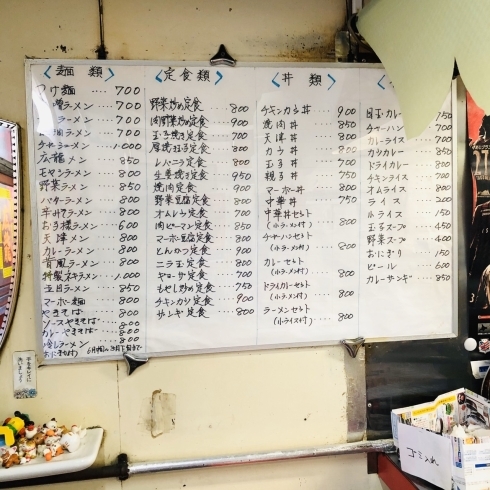 麺類
つけ麺 ···· 700
ラーメン ··· 700
ラーメン ··· 700
ラーメン ··· 700
チャーシューメン ···· 1,000
広龍ラーメン ··· 850
モヤシラーメン ··· 850
野菜ラーメン ··· 850
バターラーメン ··· 800
辛みそラーメン ··· 800
お子様ラーメン ··· 600
天津メン ······ 800
カレーラーメン ··· 800
ラーメン ··· 800
特製ネギラーメン ··· 1,000
五目ラーメン ··· 850
マーボー麺 ···· 800
やきそば ····· 800
ソースやきそば ·· 800
カレーやきそば ··· 800
冷しラーメン ··· 800
定食類
野菜炒め定食 ··· 800
肉野菜炒め定食 ··· 900
玉子焼き定食 ··· 800
厚焼玉子定食 ··· 800
レバニラ定食 ··· 800
生姜焼き定食 ··· 950
焼肉定食 ···· 900
野菜豆腐定食 ··· 800
オムレツ定食 ··· 700
肉ピーマン定食 ··· 850
マーボー豆腐定食 ··· 800
とんかつ定食 ··· 900
ニラ玉定食 ··· 800
ギョーザ定食 ··· 700
もやし炒め定食 ··· 750
チキンカツ定食 ··· 900
ザンギ定食 ···· 800
丼類
チキンカツ丼 ··· 900
焼肉丼 ····· 850
天津丼 ····· 800
カツ丼 ····· 850
玉子丼 ····· 700
親子丼 ····· 750
マーボー丼 ···· 750
中華丼 ····· 750
中華丼セット
(小ラーメン付) ··· 800
チャーハンセット
(小ラーメン付) ··· 800
カレーセット
(小ラーメン付) ··· 850
ドライカレーセット
(小ラーメン付) ··· 800
ラーメンセット
(小ライス付) ··· 800
目玉カレー ··· 750
チャーハン ··· 700
カレーライス ··· 700
カツカレー ··· 850
ドライカレー ··· 800
チキンライス ··· 700
オムライス ··· 800
ライス ····· 200
小ライス ···· 150
玉子スープ ··· 450
野菜スープ ··· 400
おにぎり ···· 150
ビール ····· 600
カレーザンギ ··· 850
手をキレイに
洗いましょう
ゴミ入れ